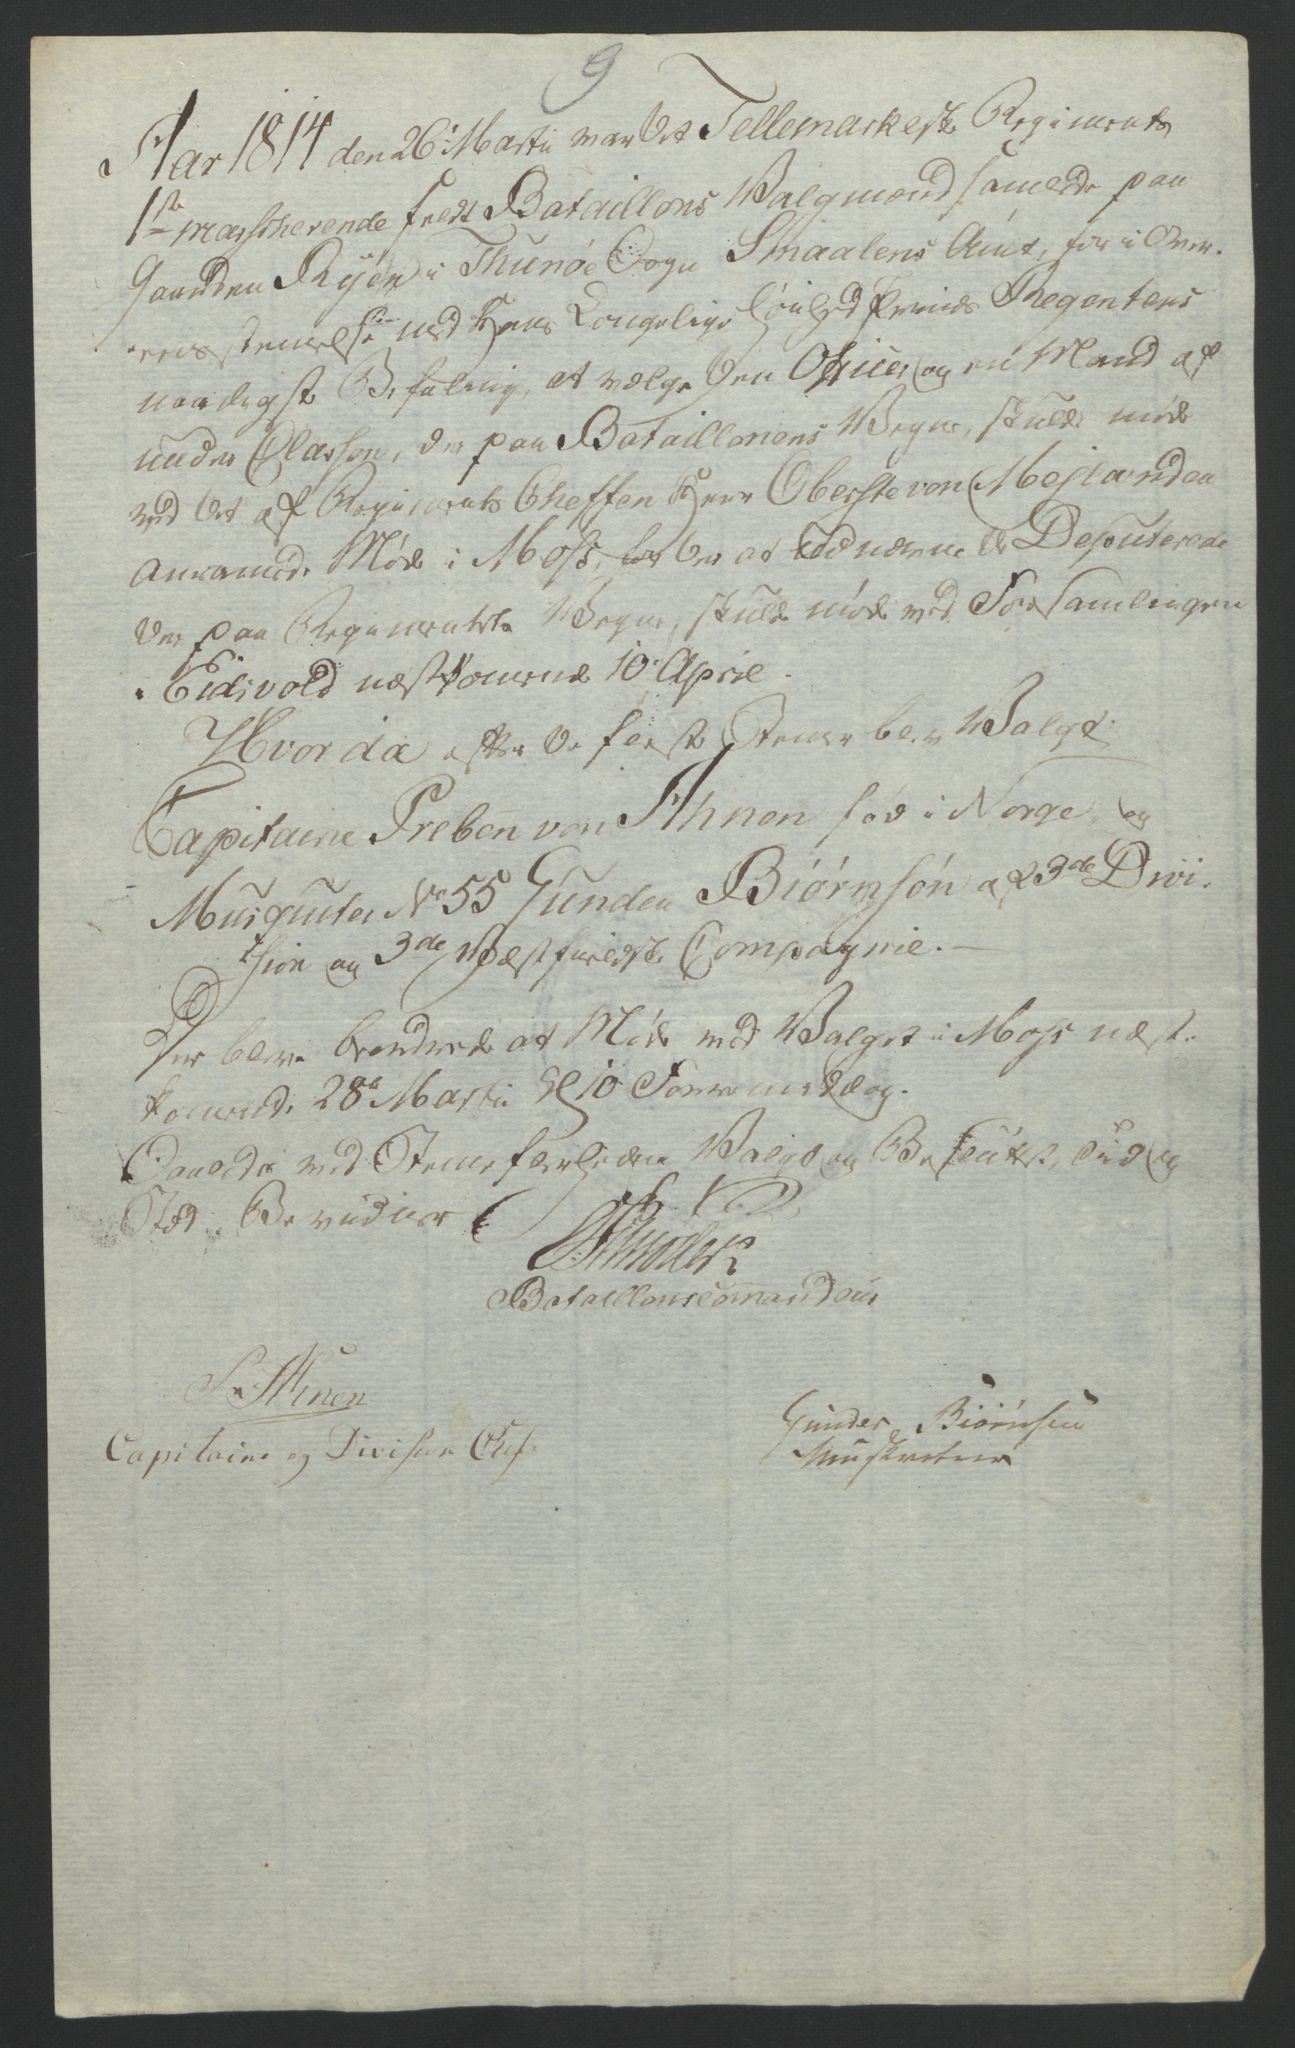 9
Aar 1814 den 26 Martii var det Tellemarkeske Regiments
1ste marscherende feldt Bataillons Valgmænd samlede paa
Gaarden Ryen i Thunøe Sogn Smaalens Amt, for i Over-
eensstemelse med Hans Kongelige Høihed Prinds Regentens
naadigste Befaling, at vælge den Officer og en Mand af
under Classen, der paa Bataillonens Vegne, skulde møde
ved det af Regiments Cheffen Herr Oberste von Mejlænder
Anvamede Møde i Moss, for der at udnævne de Deputerede
der paa Regimentets Vegne, skulde møde ved Forsamlingen
i Eidsvold næstkomende 10 April.
Hvorda efter de fleste Stemer blev Valgt:
Capitaine Preben von Ahnen fød i Norge, og
Musqueter No 55 Gunder Biørnsøn af 3de Divi-
sion og 3de Væstfieldske Compagnie.—
Der bleve beordrede at Møde ved Valget i Moss næst-
komende 28de Martii Kl 10 Formiddag.
Saaledes ved Stemeflerhedens Valg og Besluttet, Tid og
Sted Bevidner
Bataillonscommandeur
P v Ahnen
Capitaine og Divisions Chef.
Gunder Biørnsen
Musketeer